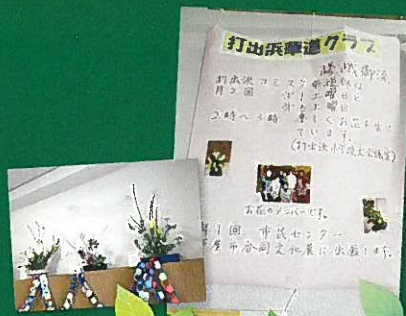 打出浜華道クラブ
嵯峨御流
打出浜コミスク華道は
月2回 第1土曜日と
第3土曜日
2時〜3時 楽しくお花を生け
ています。
(打出浜小学校大会議室)
お花のメンバーです。
年1回 市民センター
芦屋市合同文化展に出展します。